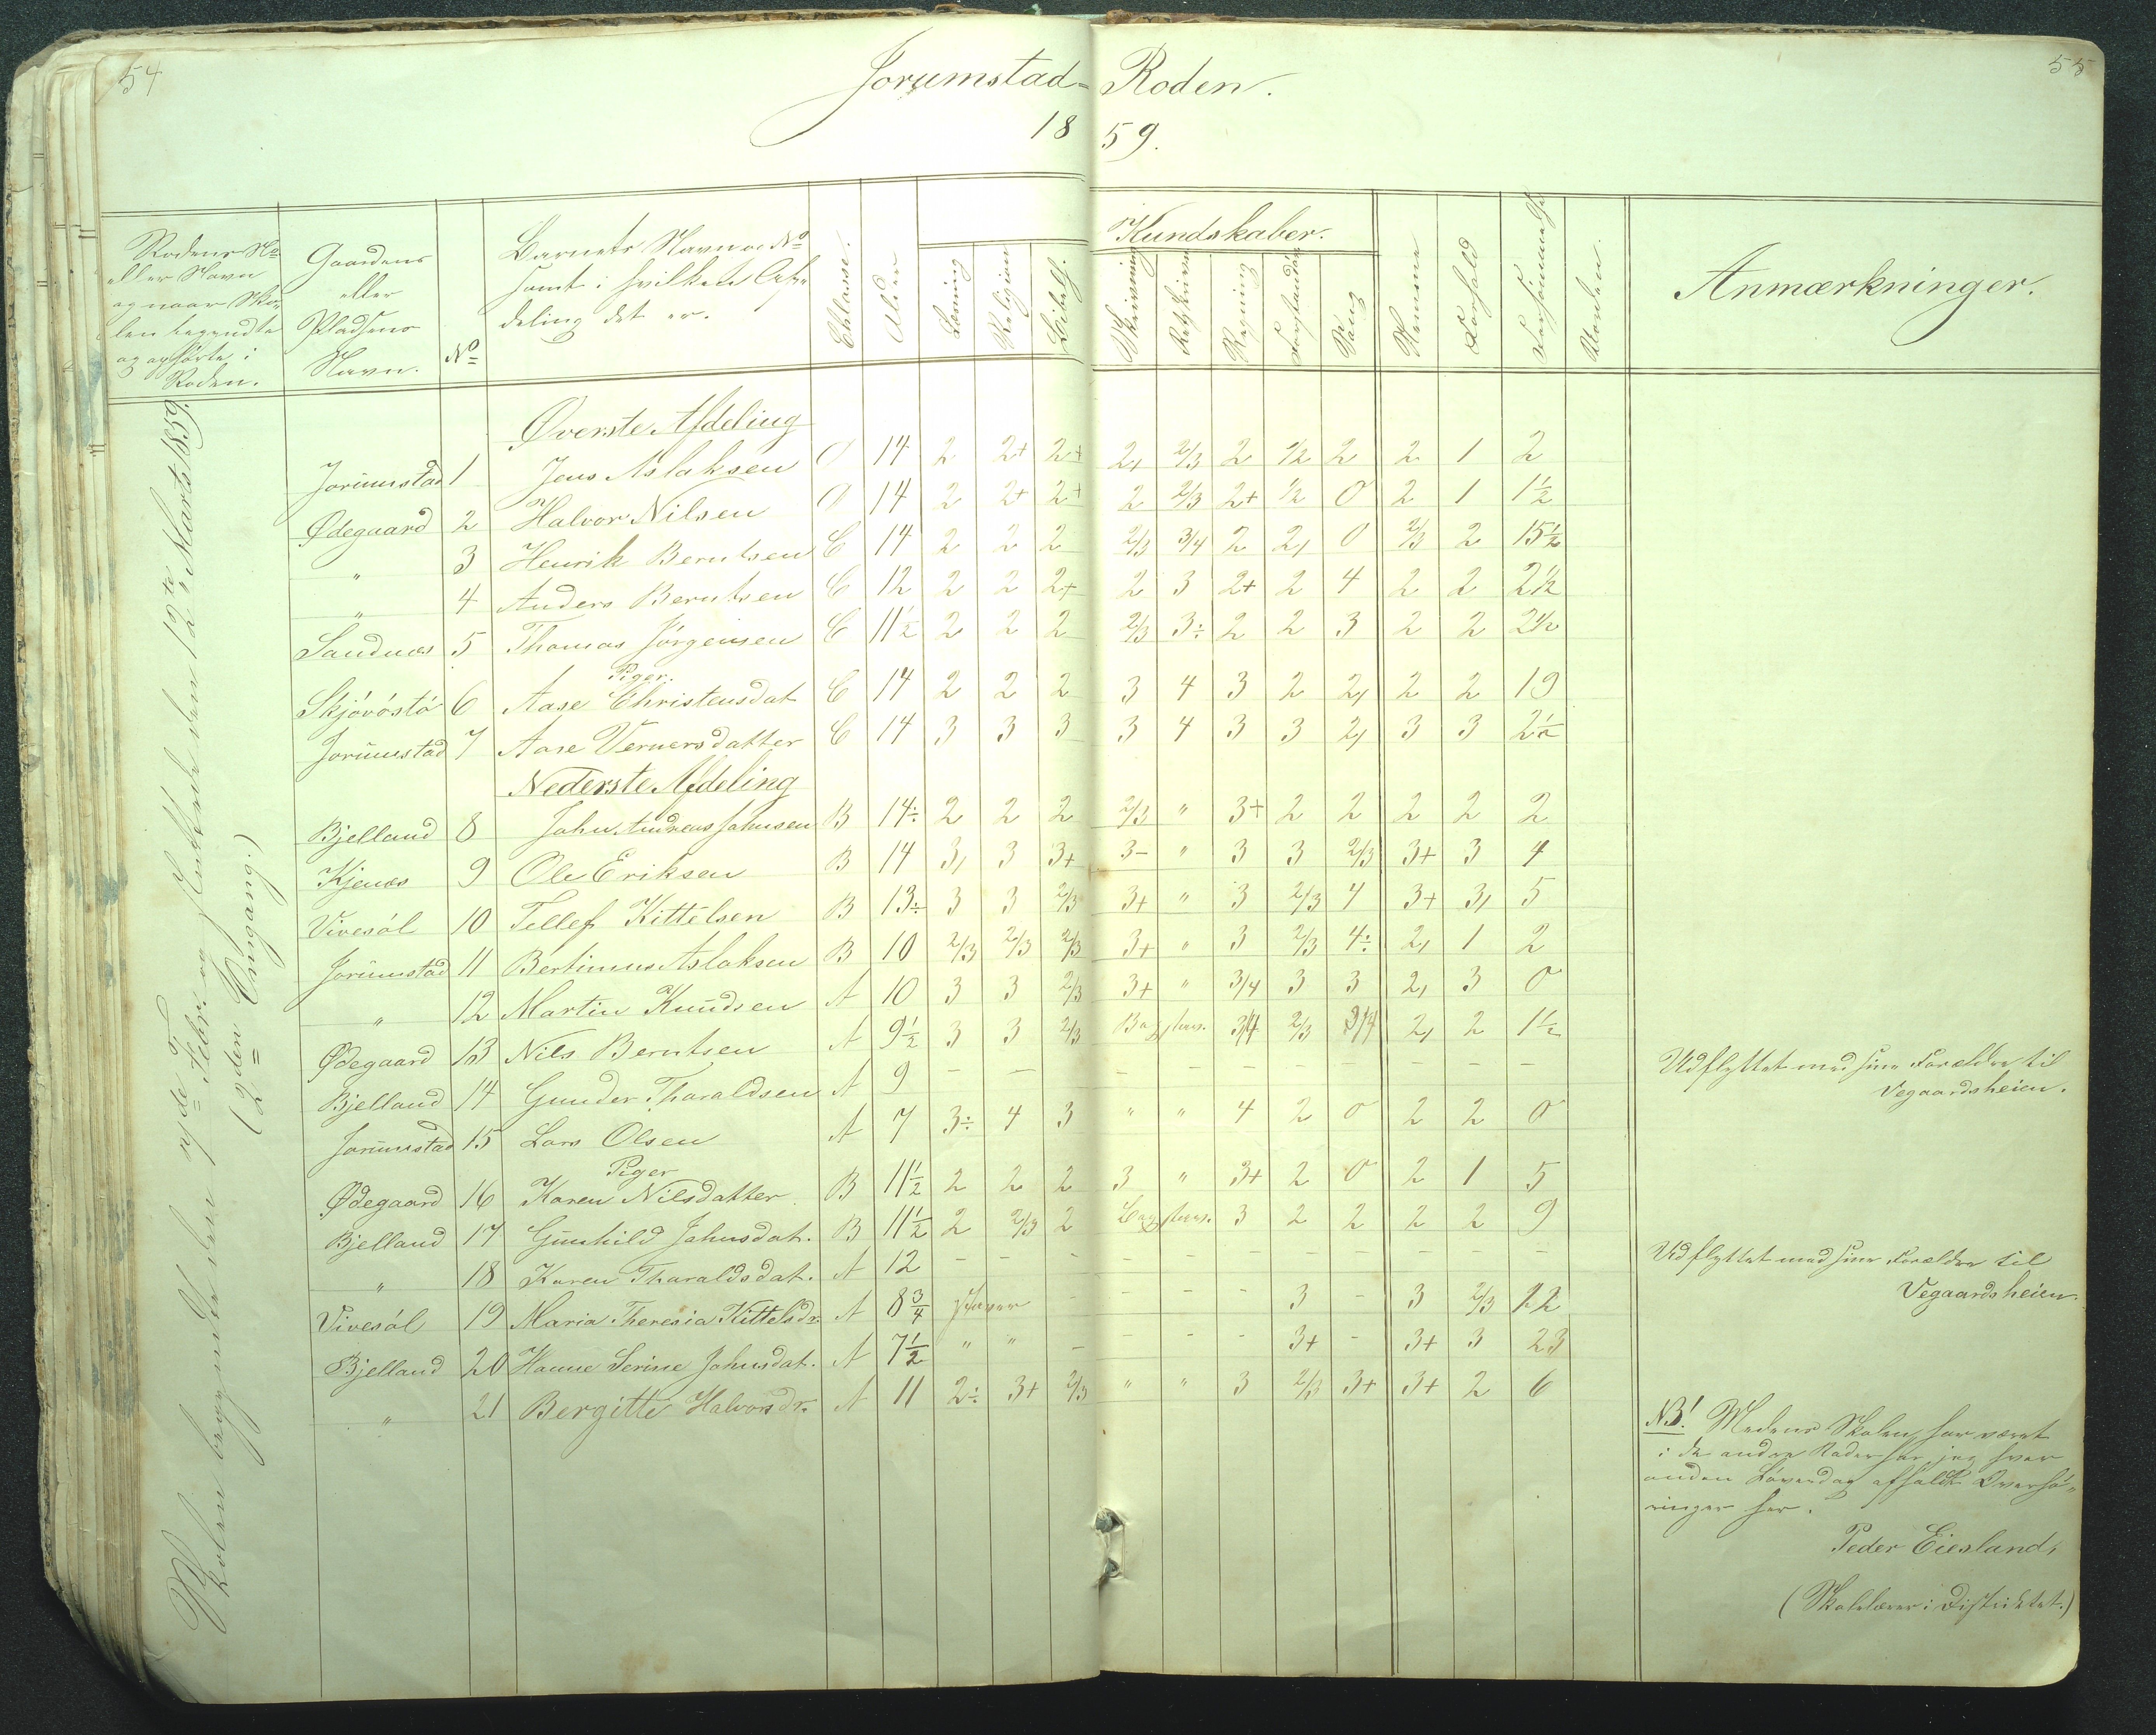 54
55
Jorumstad- Roden.
1859.
Rodens No
eller Navn
og naar Sko-
len begyndte
og ophørte i
Roden.
Gaardens
eller
Pladsens
Navn.
No
Barnets Navn og No
samt i hvilken Afde-
deling det er.
Classe.
Alder
Læsning
Religion
Bibelh.
Kundskaber.
Skrivning
Retskrivn
Regning
Forstandsø
Sang
Nemme
Forhold
Forsømmelse
Anmærkninger.
Skolen begyndte den 7de Febr. og sluttede den 12te Marts 1859.
(2den Omgang.)
Øverste Afdeling
Jorumstad 1 Jens Aslaksen O 14 2 2+ 2+ 2, 2/3 2 1/2 2 2 1 2
Ødegaard 2 Halvor Nilsen O 14 2 2+ 2+ 2 2/3 2+ 1/2 0 2 1 1½
" 3 Henrik Berntsen C 14 2 2 2 2/3 3/4 2 2, 0 2/3 2 15½
" 4 Anders Berntsen C 12 2 2 2+ 2 3 2+ 2 4 2 2 2½
Sandnæs 5 Thomas Jørgensen C 11½ 2 2 2 2/3 3÷ 2 2 3 2 2 2½
Piger.
Skjøvøstø 6 Aase Christensdat C 14 2 2 2 3 4 3 2 2, 2 2 19
Jorumstad 7 Aase Vernersdatter C 14 3 3 3 3 4 3 3 2, 3 3 2½
Nederste Afdeling
Bjelland 8 John Andreas Johnsen B 14÷ 2 2 2 2/3 " 3+ 2 2 2 2 2
Kjenæs 9 Ole Eriksen B 14 3, 3 3+ 3- " 3 3 2/3 3+ 3 4
Vivesøl 10 Tellef Kittelsen B 13÷ 3 3 2/3 3+ " 3 2/3 4 3+ 3, 5
Jorumstad 11 Bertinius Aslaksen B 10 2/3 2/3 2/3 3+ " 3 2/3 4÷ 2, 1 2
" 12 Martin Knudsen A 10 3 3 2/3 3+ " 3/4 3 3 2, 3 0
Ødegaard 13 Nils Berntsen A 9½ 3 3 2/3 3/4 2/3 3/4 2, 2 1½
Bjelland 14 Gunder Tharaldsen A 9 - - - - - - - - - - Udflyttet med sine Forældre til
Vegaardsheien.
Jorumstad 15 Lars Olsen A 7 3÷ 4 3 " " 4 2 0 2 2 0
Piger
Ødegaard 16 Karen Nilsdatter B 11½ 2 2 2 3 " 3+ 2 0 2 1 5
Bjelland 17 Gunhild Johnsdat. B 11½ 2 2/3 2 3 2 2 2 2 9
" 18 Karen Tharaldsdat. A 12 - - - - - - - - - - - Udflyttet med sine Forældre til
Vegaardsheien.
Vivesøl 19 Maria Theresia Kittelsdr. A 8¾ staver - - - - 3 - 3 2/3 22
Bjelland 20 Hanne Serine Johnsdat. A 7½ " " - - - - 3+ - 3+ 3 23
" 21 Bergitte Halvorsdr. A 11 2÷ 3+ 2/3 " " 3 2/3 3+ 3+ 2 6
NB! Medens Skolen har været
i de andre Roder har jeg hver
anden Løverdag afholdt Overhø-
ringer her.
Peder Eiesland,
(Skolelærer i Distriktet.)